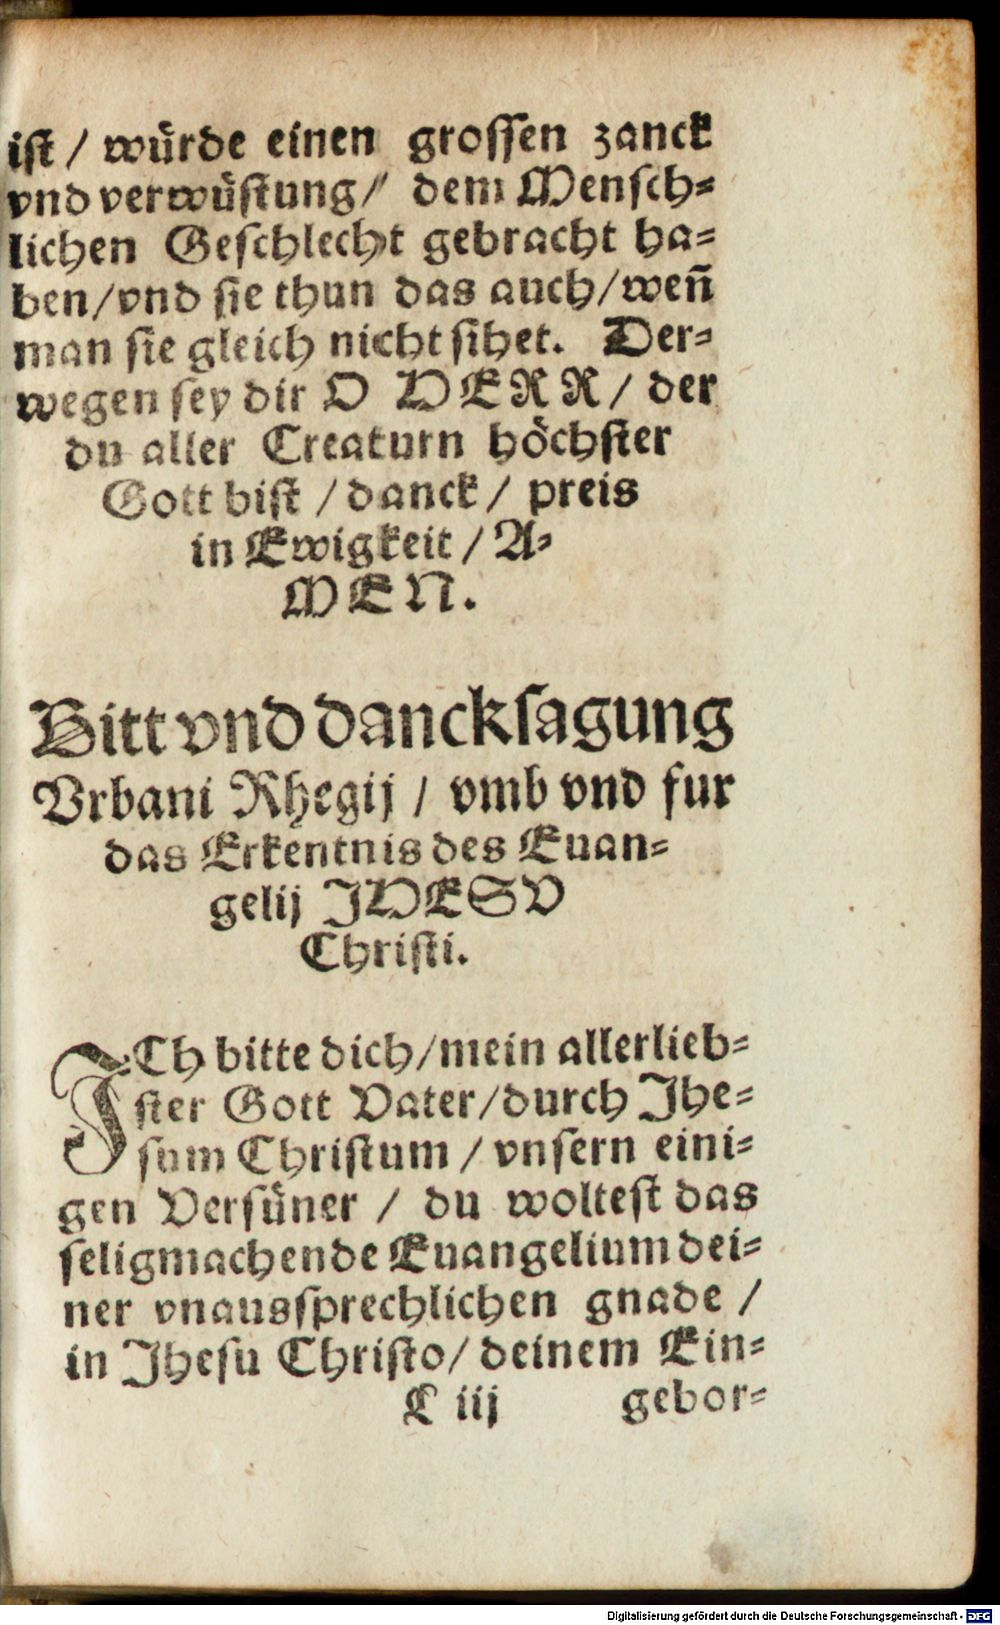 ist / würde einen grossen zanck
vnd verwüstung / dem Mensch⸗
lichen Geschlecht gebracht ha⸗
ben / vnd sie thun das auch / wen̄
man sie gleich nicht sihet. Der⸗
wegen sey dir O HERR / der
du aller Creaturn höchster
Gott bist / danck / preis
in Ewigkeit / A⸗
MEN.
Bitt vnd dancksagung
Vrbani Rhegij / vmb vnd fur
das Erkentnis des Euan⸗
gelij JHESV
Christi.
ICh bitte dich / mein allerlieb⸗
ster Gott Vater / durch Jhe⸗
sum Christum / vnsern eini⸗
gen Versüner / du woltest das
seligmachende Euangelium dei⸗
ner vnaussprechlichen gnade /
in Jhesu Christo / deinem Ein⸗
C iij gebor⸗
Digitalisierung gefördert durch die Deutsche Forschungsgemeinschaft - DFG